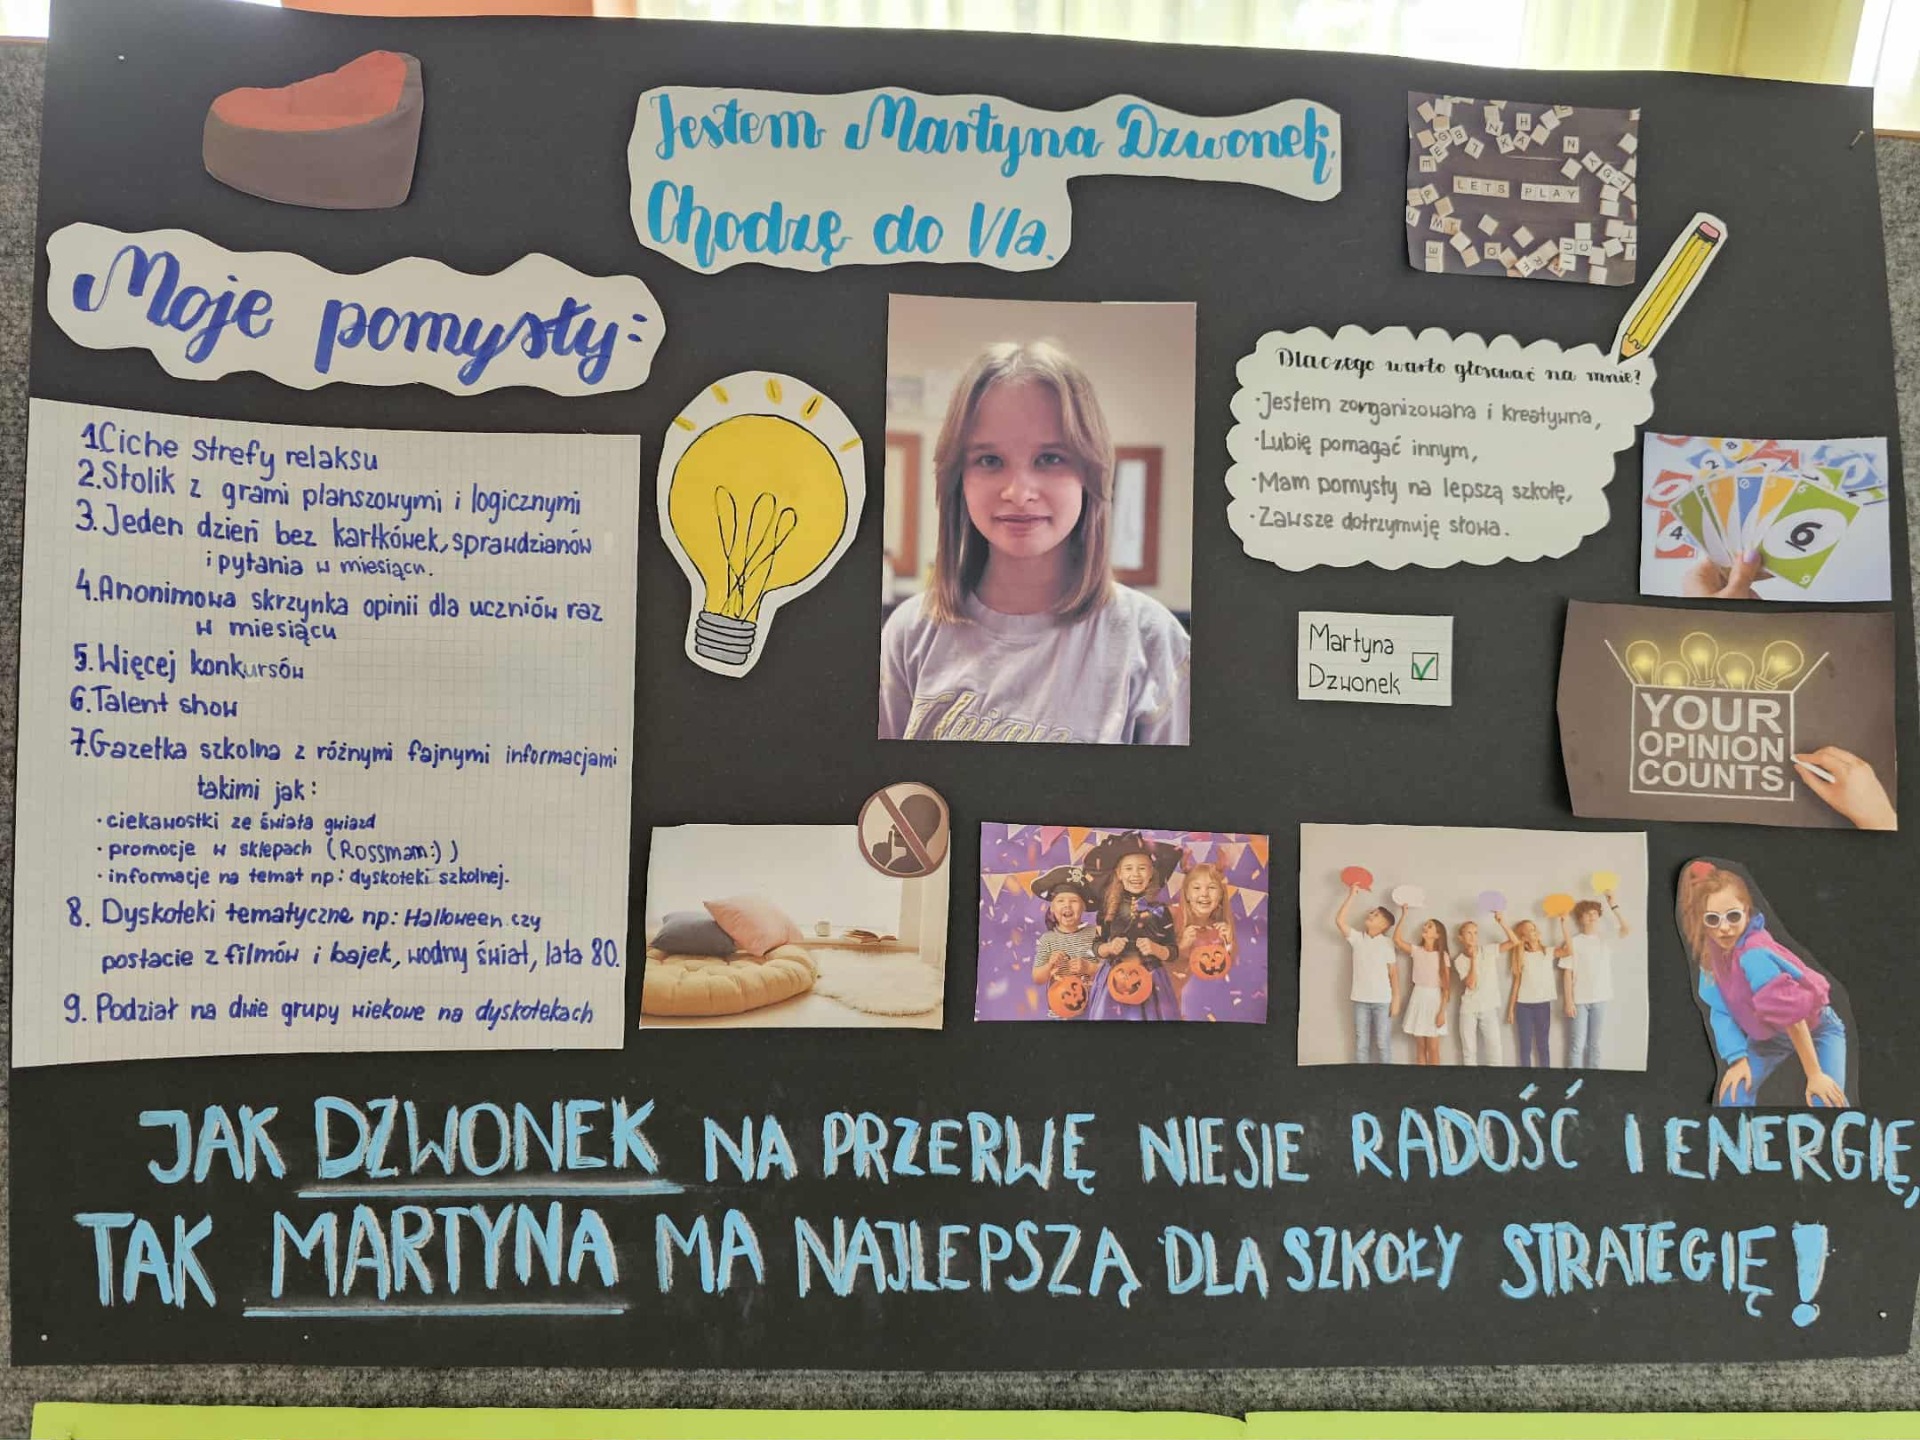 Jestem Martyna Dzwonek.
Chodzę do VIa.
LETS PLAY
Moje pomysły:
1.Ciche strefy relaksu
2.Stolik z grami planszowymi i logicznymi
3.Jeden dzień bez kartkówek, sprawdzianów
i pytania w miesiącu.
4.Anonimowa skrzynka opinii dla uczniów raz
w miesiącu
5.Więcej konkursów
6.Talent show
7.Gazetka szkolna z różnymi fajnymi informacjami
takimi jak:
·ciekawostki ze świata gwiazd
·promocje w sklepach (Rossmam:))
·informacje na temat np: dyskoteki szkolnej.
8. Dyskoteki tematyczne np: Halloween czy
postacie z filmów i bajek, wodny świat, lata 80.
9. Podział na dwie grupy wiekowe na dyskotekach
Dlaczego warto głosować na mnie?
·Jestem zorganizowana i kreatywna,
·Lubię pomagać innym,
·Mam pomysły na lepszą szkołę,
·Zawsze dotrzymuję słowa.
Martyna
Dzwonek
YOUR
OPINION
COUNTS
JAK DZWONEK NA PRZERWĘ NIESIE RADOŚĆ I ENERGIĘ,
TAK MARTYNA MA NAJLEPSZĄ DLA SZKOŁY STRATEGIĘ!